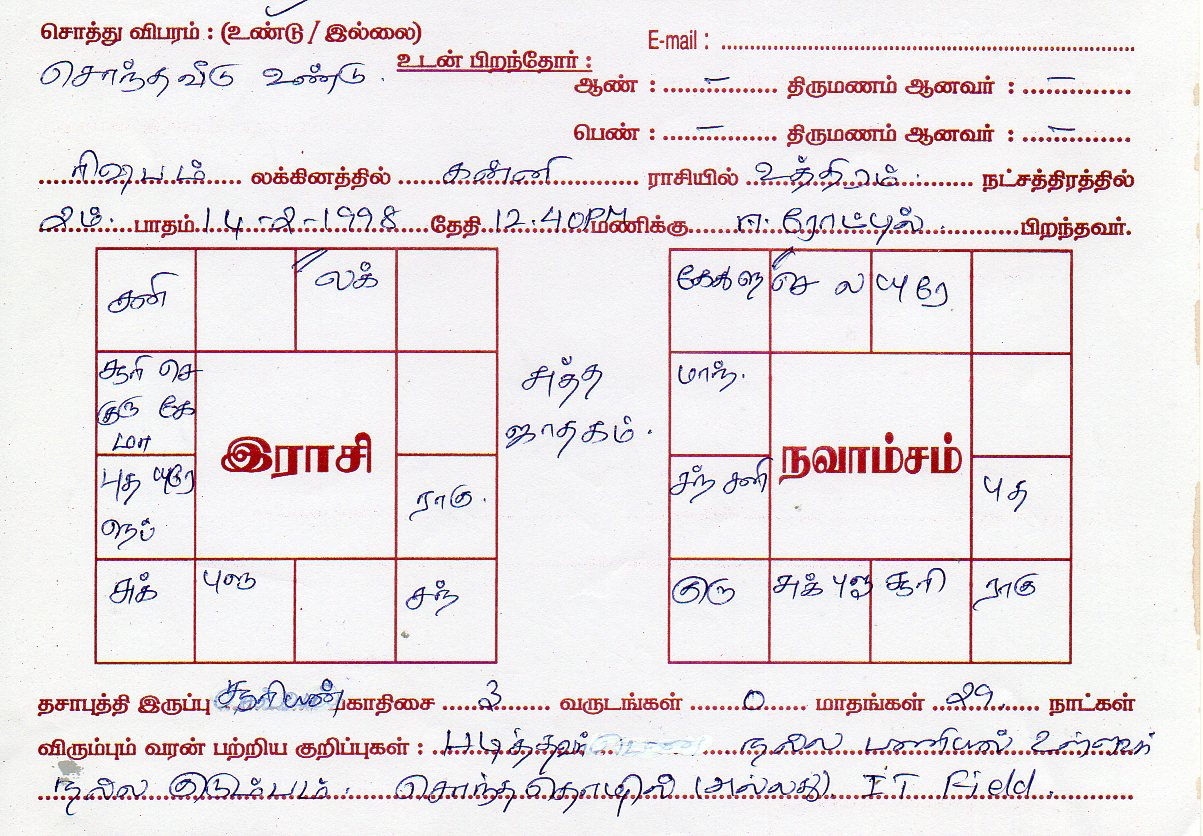 சொத்து விபரம் : (உண்டு / இல்லை) E-mail :
சொந்த வீடு உண்டு. உடன் பிறந்தோர் :
ஆண் : – திருமணம் ஆனவர் : –
பெண் : – திருமணம் ஆனவர் : –
ரிஷபம் லக்கினத்தில் கன்னி ராசியில் உத்திரம் நட்சத்திரத்தில்
2ம். பாதம் 14-2-1998 தேதி 12.40PM மணிக்கு பிறந்தவர்.
சனி லக்
சூரி செ
குரு கே
மா
இராசி
புத யுரே
நெப்
ராகு
சுக் புளு சந்
சுத்த
ஜாதகம்.
கேது செ ல யுரே
மாந்.
நவாம்சம்
சந் சனி புத
குரு சுக் புளு சூரி ராகு
தசாபுத்தி இருப்பு சூரியன் மகாதிசை 3 வருடங்கள் 0 மாதங்கள் 29 நாட்கள்
விரும்பும் வரன் பற்றிய குறிப்புகள் : படித்தவர் நல்ல பணியில் உள்ளவர்
நல்ல குடும்பம். சொந்த தொழில் (அல்லது) IT Field.